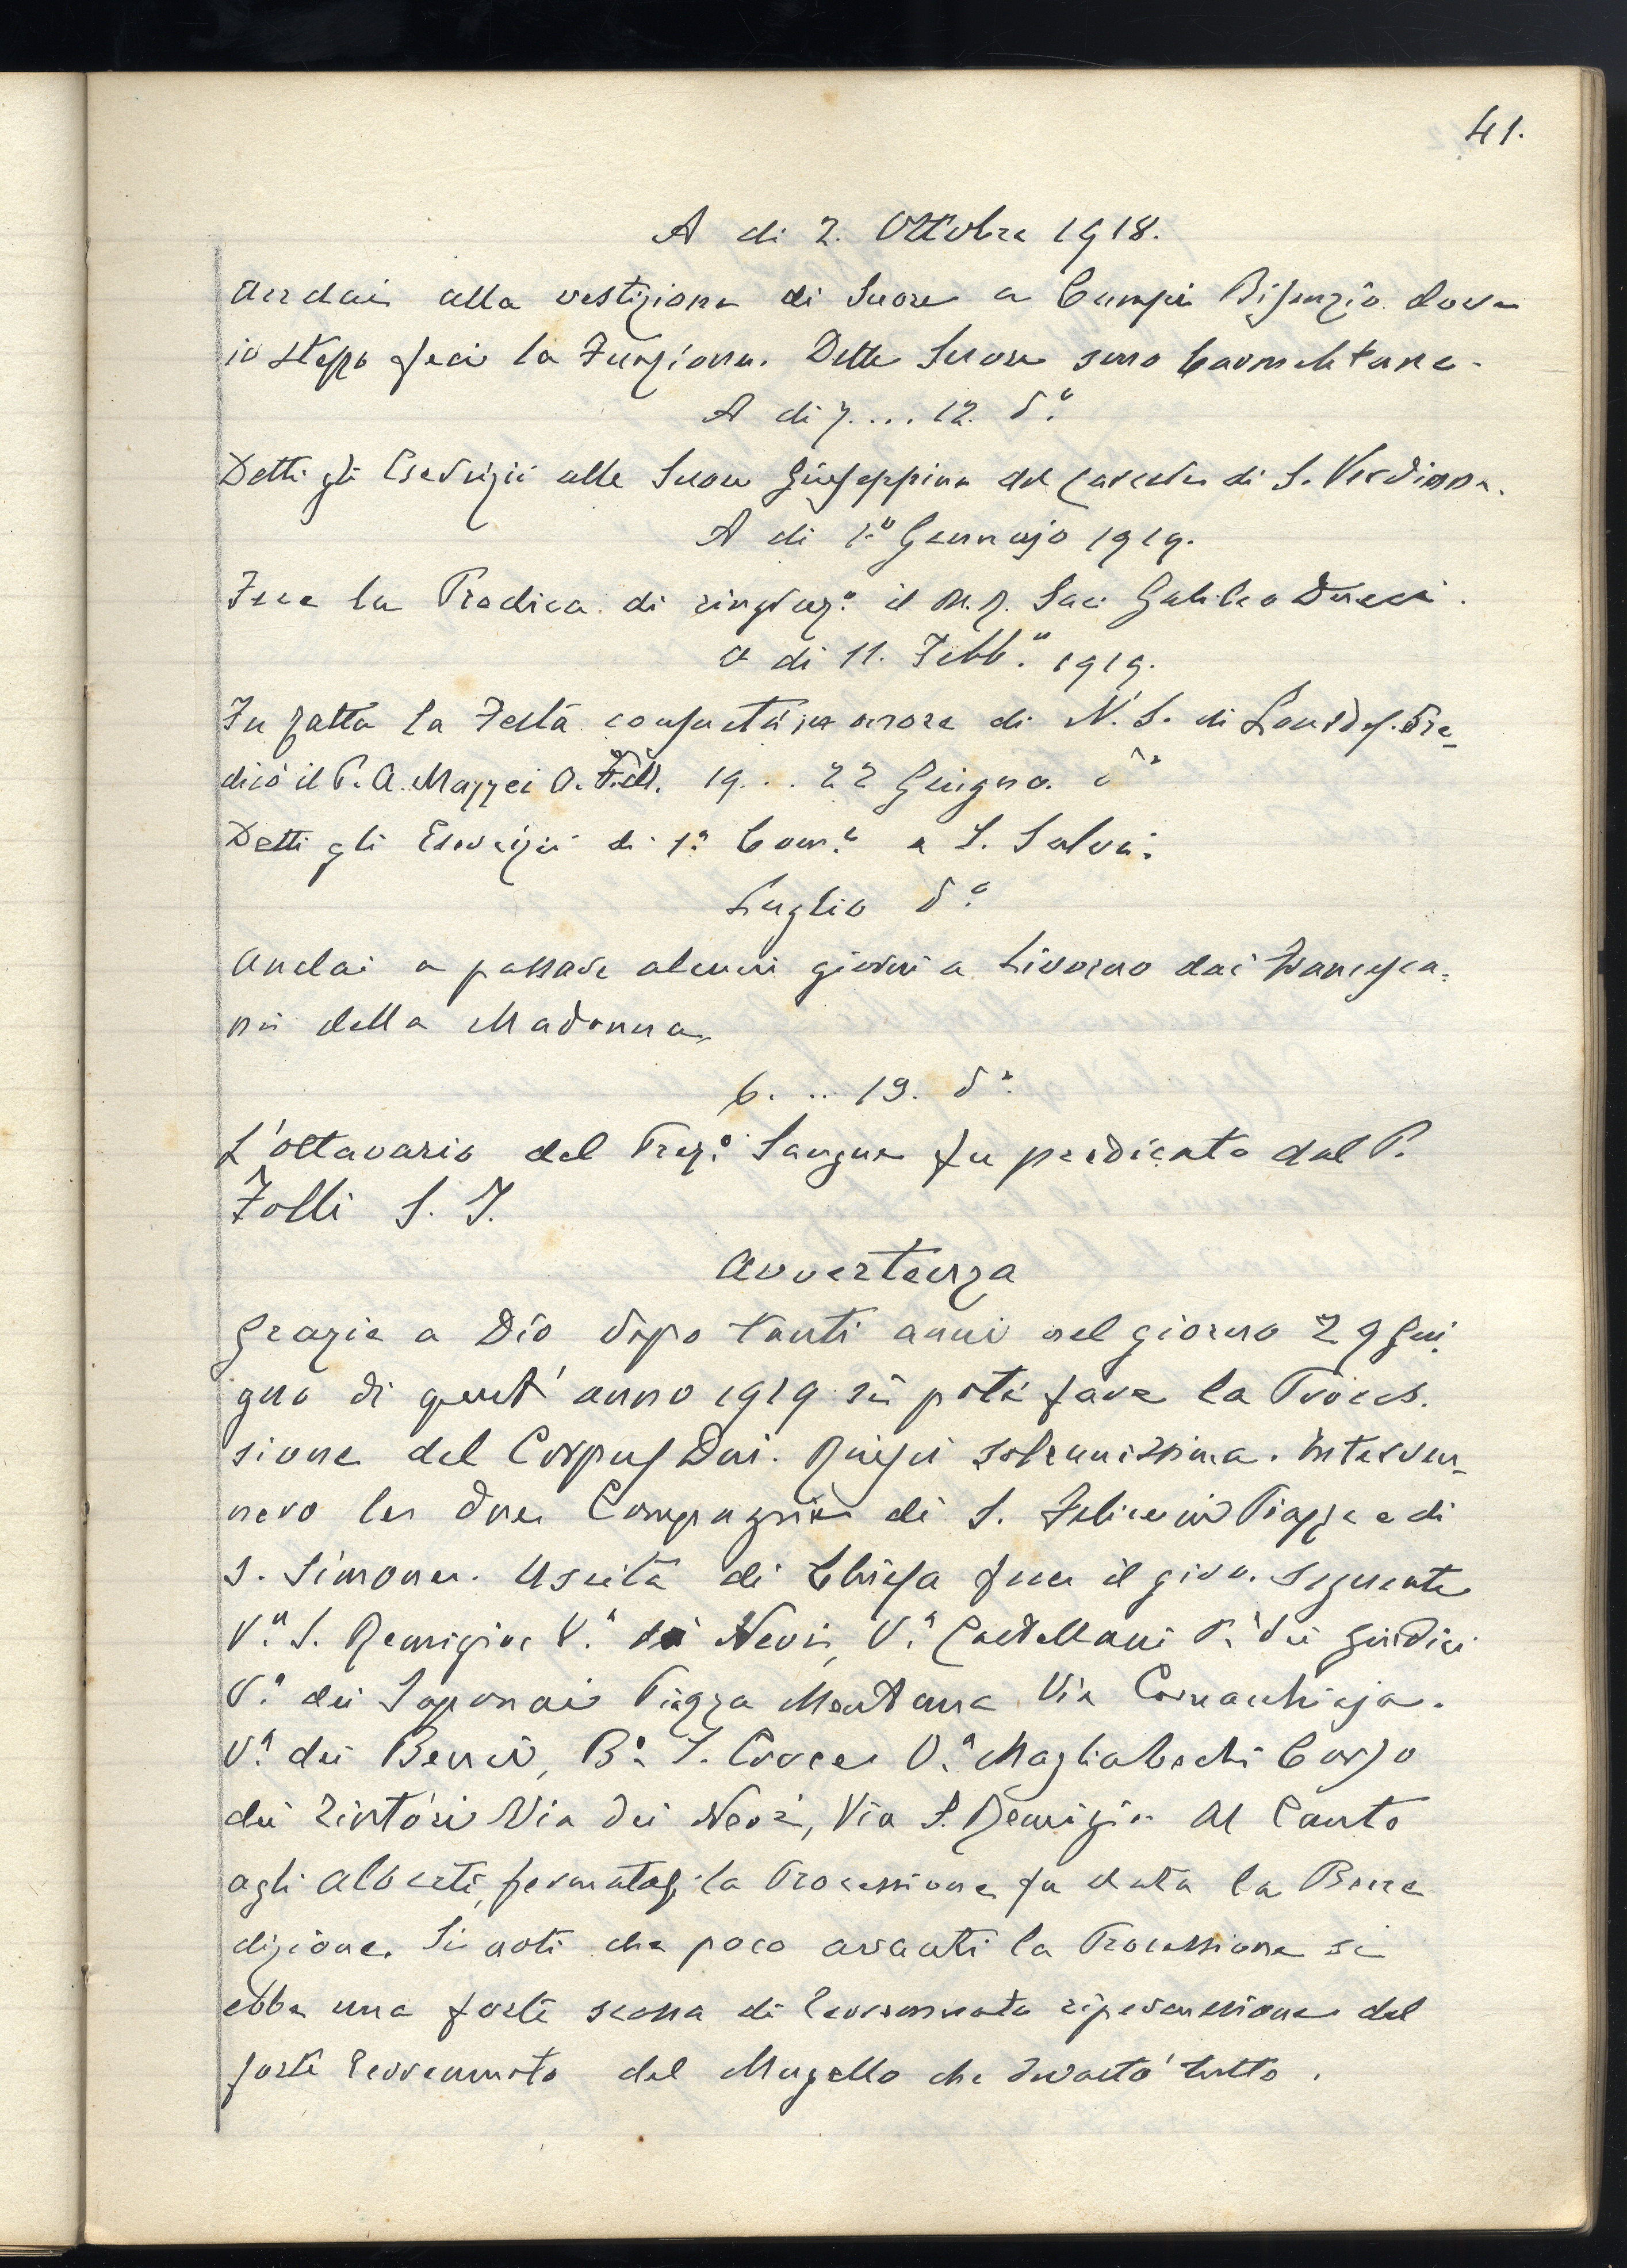 41.
A di 2. Ottobre 1918.
Andai alla vestizione di Suore a Campi Bisenzio dove
io stesso feci la Funzione. Dette Suore sono Carmelitane.
A di 7.... 12. dº
Detti gli Esercizii alle Suore Giuseppine del Carcere di S. Verdiana.
A di 1º Gennajo 1919.
Fece la Predica di ringrazº il M. R. Sac. Galileo
A di 11. Febbº 1919.
Fu fatta la Festa consueta in onore di N. S. di Lourdes. Pre-
dicò il P. A. Mazzei O. F. M. 19... 22 Giugno. dº
Detti gli Esercizii di 1ª Comº a S. Salvi.
Luglio dº
Andai a passare alcuni giorni a Livorno dai Francesca-
ni della Madonna.
6. .. 19. dº
L'ottavario del Prezº Sangue fu predicato dal P.
Folli S. J.
Avvertenza
Grazie a Dio dopo tanti anni nel giorno 29 Giu-
gno di quest'anno 1919 si potè fare la Proces.
sione del Corpus Dni. Riuscì solennissima. Interven-
nero le due Compagnie di S. Felice in Piazza e di
S. Simone. Uscita di Chiesa fece il giro seguente
Vª S. Remigio Vª dei Neri, Vª Castellani Pª dei Giudici
Vª dei Saponai Piazza Mentana Via Cornacchiaja.
Vª dei Benci, Bº S. Croce Vª Magliabechi Corso
dei Tintori Via dei Neri, Via S. Remigio Al Canto
agli Alberti, fermatasi la Processione fu data la Bene
dizione. Si noti che poco avanti la Processione si
ebbe una forte scossa di Terremoto ripercussione del
forte Terremoto del Mugello che devastò tutto.